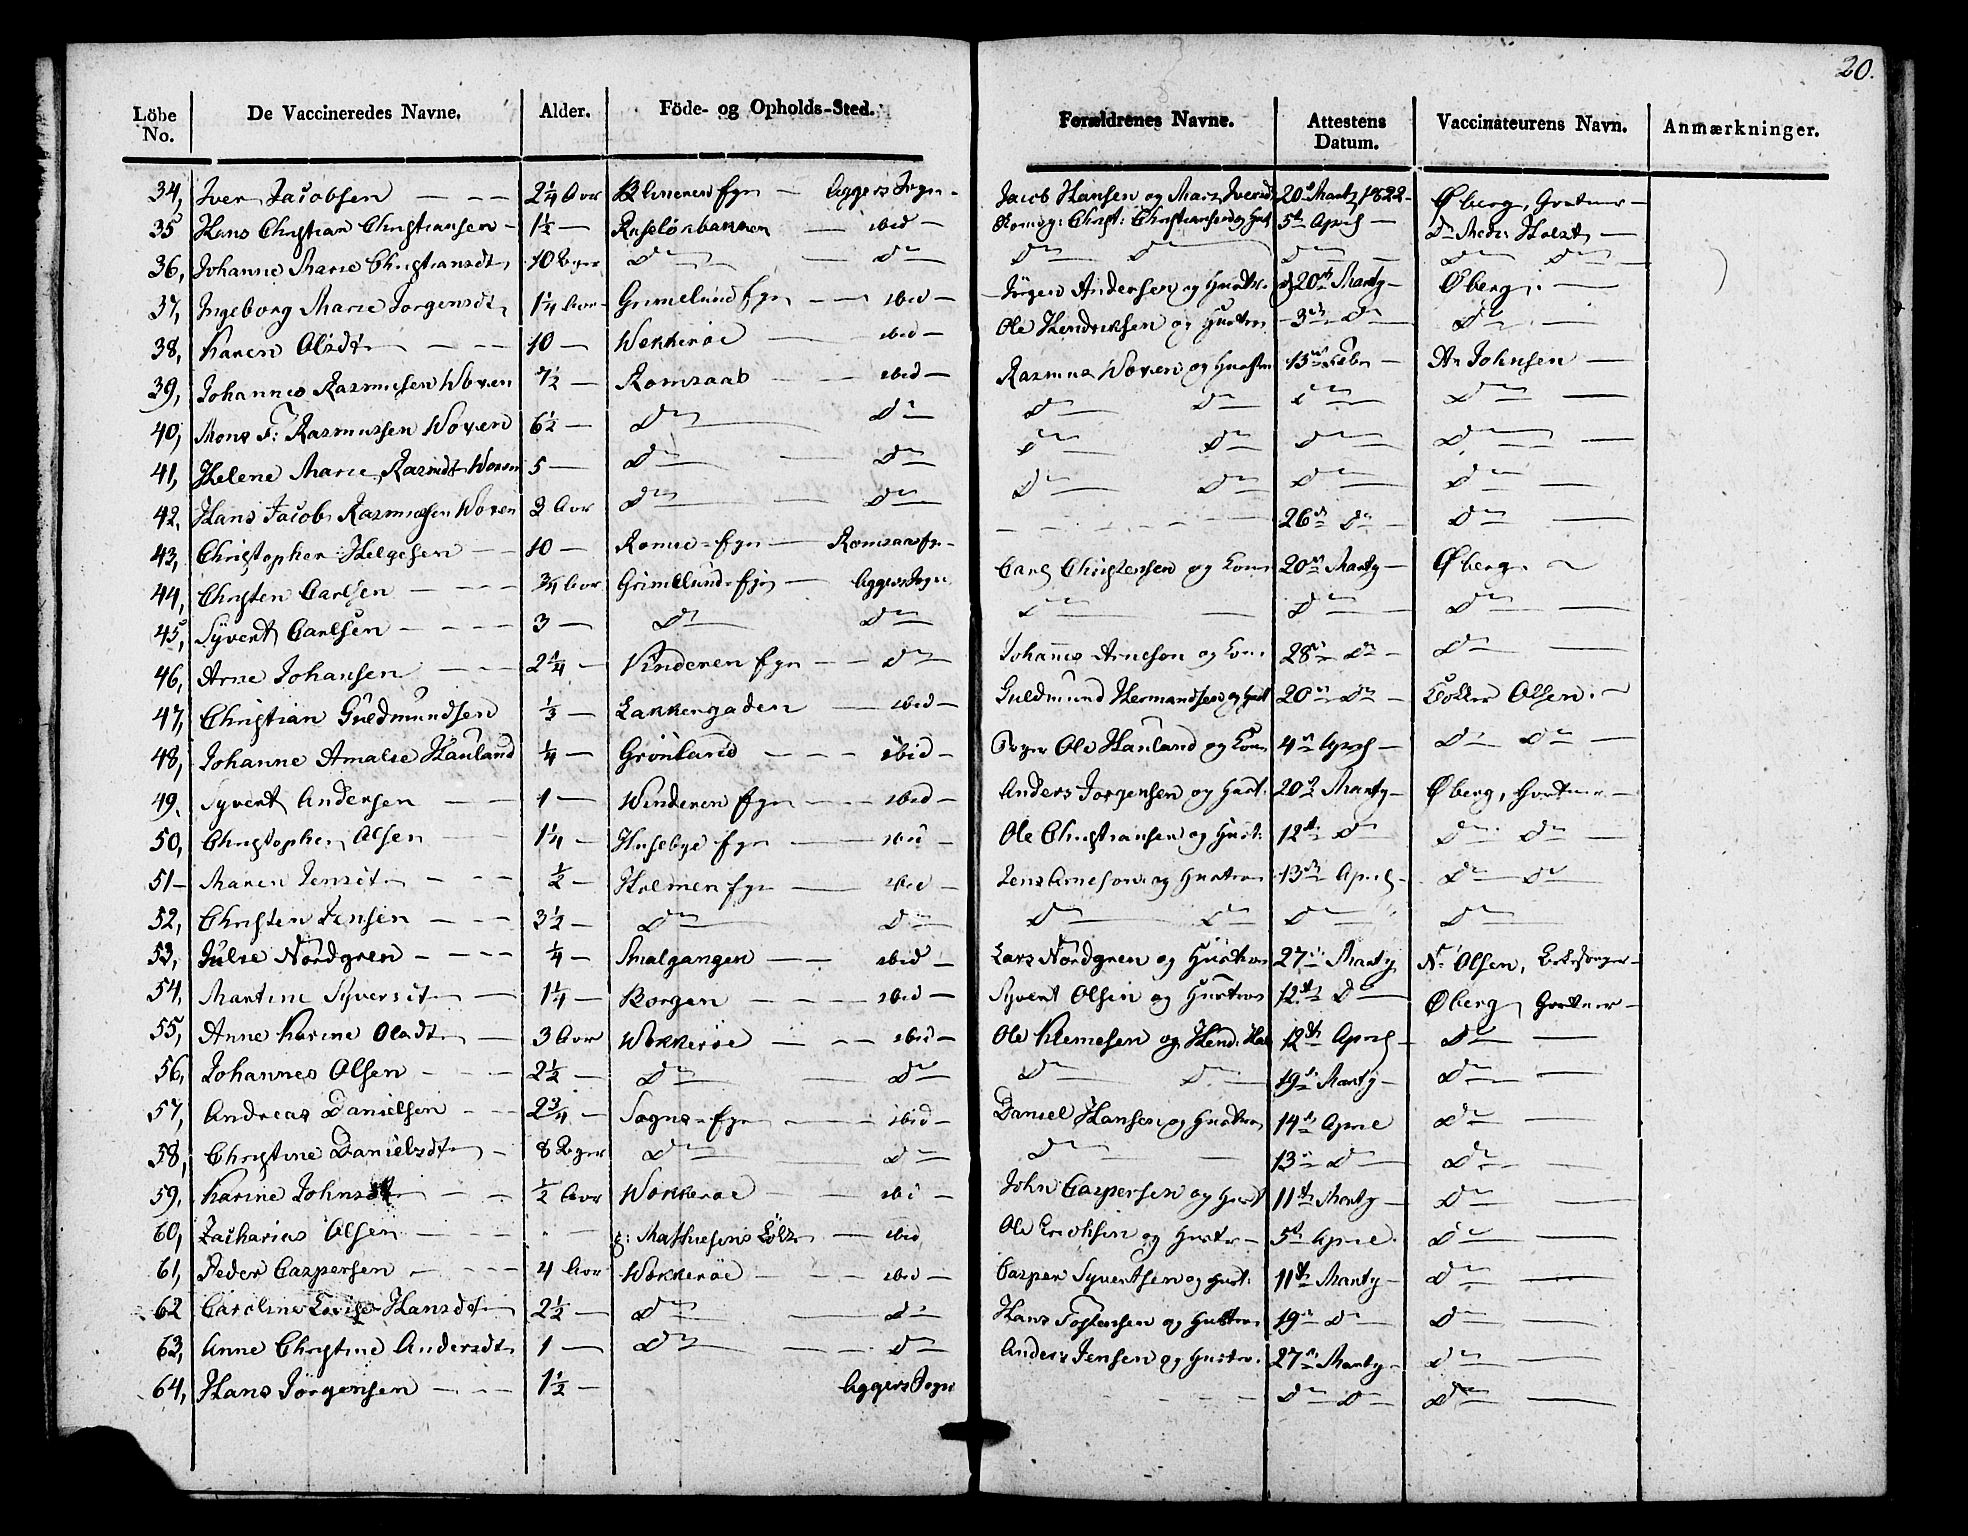 20.
Löbe No. De Vaccineredes Navne. Alder. Föde- og Opholds-Sted. Forældrenes Navne. Attestens Datum. Vaccinateurens Navn. Anmærkninger.
34, Iver Jacobsen — 2¼ Aar Blinderen Ejer — Aggers Sogn — Jacob Hansen og 20de Martz 1822 — Øberg, Gartner —
35 Hans Christian Christiansen — 1½ — Ruseløkbakken — ibid — Christ: Christiansen og Hust 5te April — Dr Medi: Holst —
36, Johanne Marie Christiansdt 10 Uger Do — Do — Do Do Do — Do Do —
37, Ingeborg Marie Jørgensdt 1¼ Aar — Grimelund Ejer — ibid — Jørgen Andersen og Hustr: 20de Martz — Øberg. —
38, Karen Olsdt — 10 — Wækkerøe — ibid — Ole Hendriksen og Hustru 3de Do Do —
39, Johannes Rasmusen Woxen 7½ — Romsaas — ibid — Rasmus Woxen og Hustru 15de Febr — Johnsen —
40, Mons F: Rasmussen Woxen 6½ — Do — Do Do Do Do Do —
41, Helene Marie Rasmdt Woxen 5 — Do — Do Do Do Do Do —
42, Hans Jacob Rasmussen Woxen 3 Aar Do — Do Do Do Do Do —
43, Christopher Helgesen — 10 — — — 26de Do — Do —
44, Christen Carlsen — ¾ Aar Grimelund-Ejer — Aggers Sogn Carl Christensen og Kone 20de Martz — Øberg. —
45, Syvert Carlsen — 3 — Do Do Do — Do Do —
46, Arne Johansen — 2¼ — Vinderen Ejer — Do Johannes Arneson og Kone 28de Do — Do —
47, Christian Guldmundsen ⅓ — Lakkergaden — ibid — Guldmund Hermandsen og Hust 20de Do — Klokker Olsen. —
48, Johanne Amalie Hauland ¼ — Grönland — ibid — Ole Hauland og Kone 4de April — Do Do —
49. Syvert Andersen — 1 — Winderen Ejer — ibid — Anders Jorgensen og Hust: 20de Martz — Øberg, Gartner —
50, Christopher Olsen — 1¼ — Husebye Ejer — ibid — Ole Christiansen og Hust: 12te Do Do Do —
51 — Maren Jensdt — ½ — Holmen Ejer — ibid — Jens Arneson og Hustrue 13de April — Do Do
52, Christen Jensen — 3½ — Do — Do — Do Do Do Do —
53, Julie Nordgren — ¼ — Smalgangen — ibid — Lars Nordgren og Hustrue 27de Martz Nr Olsen, Kirkesanger —
54, Martine Syversdt — 1¼ — Borgen — ibid — Syvert Olsen og Hustrue 12te Do — Øberg, Gartner —
55, Anne Karine Olsdt — 3 Aar Wækkerøe — ibid — Ole Klemesen og 12te April — Do —
56, Johannes Olsen — 2½ — Do — Do — Do Do 19de Martz — Do —
57, Andreas Danielsen — 2¾ — Sogns-Ejer — ibid — Daniel Hansen og Hustrue 14de April Do —
58, Christine Danielsdt — 8 Uger Do — Do — Do 13de Do — Do —
59, Karine Johnsdt — ½ Aar Wækkerøe — ibi — John Caspersen og Hust 11te Martz — Do —
60, Zacharias Olsen — — Mathiesens Lökke — ibid Ole Erichsen og Hustr — 5te April. Do —
61, Peder Caspersen — 4 Aar Wækkerøe — ibid — Casper Syvertsen og Hust: 11te Martz — Do —
62 Caroline Lovise Hansdt 2½ — Do — Do Hans Tostensen og Hustrue 19de Do — Do —
63, Anne Christine Andersdt 1 — Do — Do Anders Jensen og Hustru. 27de Martz — Do —
64, Hans Jörgensen — 1½ — Aggers Sogn — Do Do — Do —